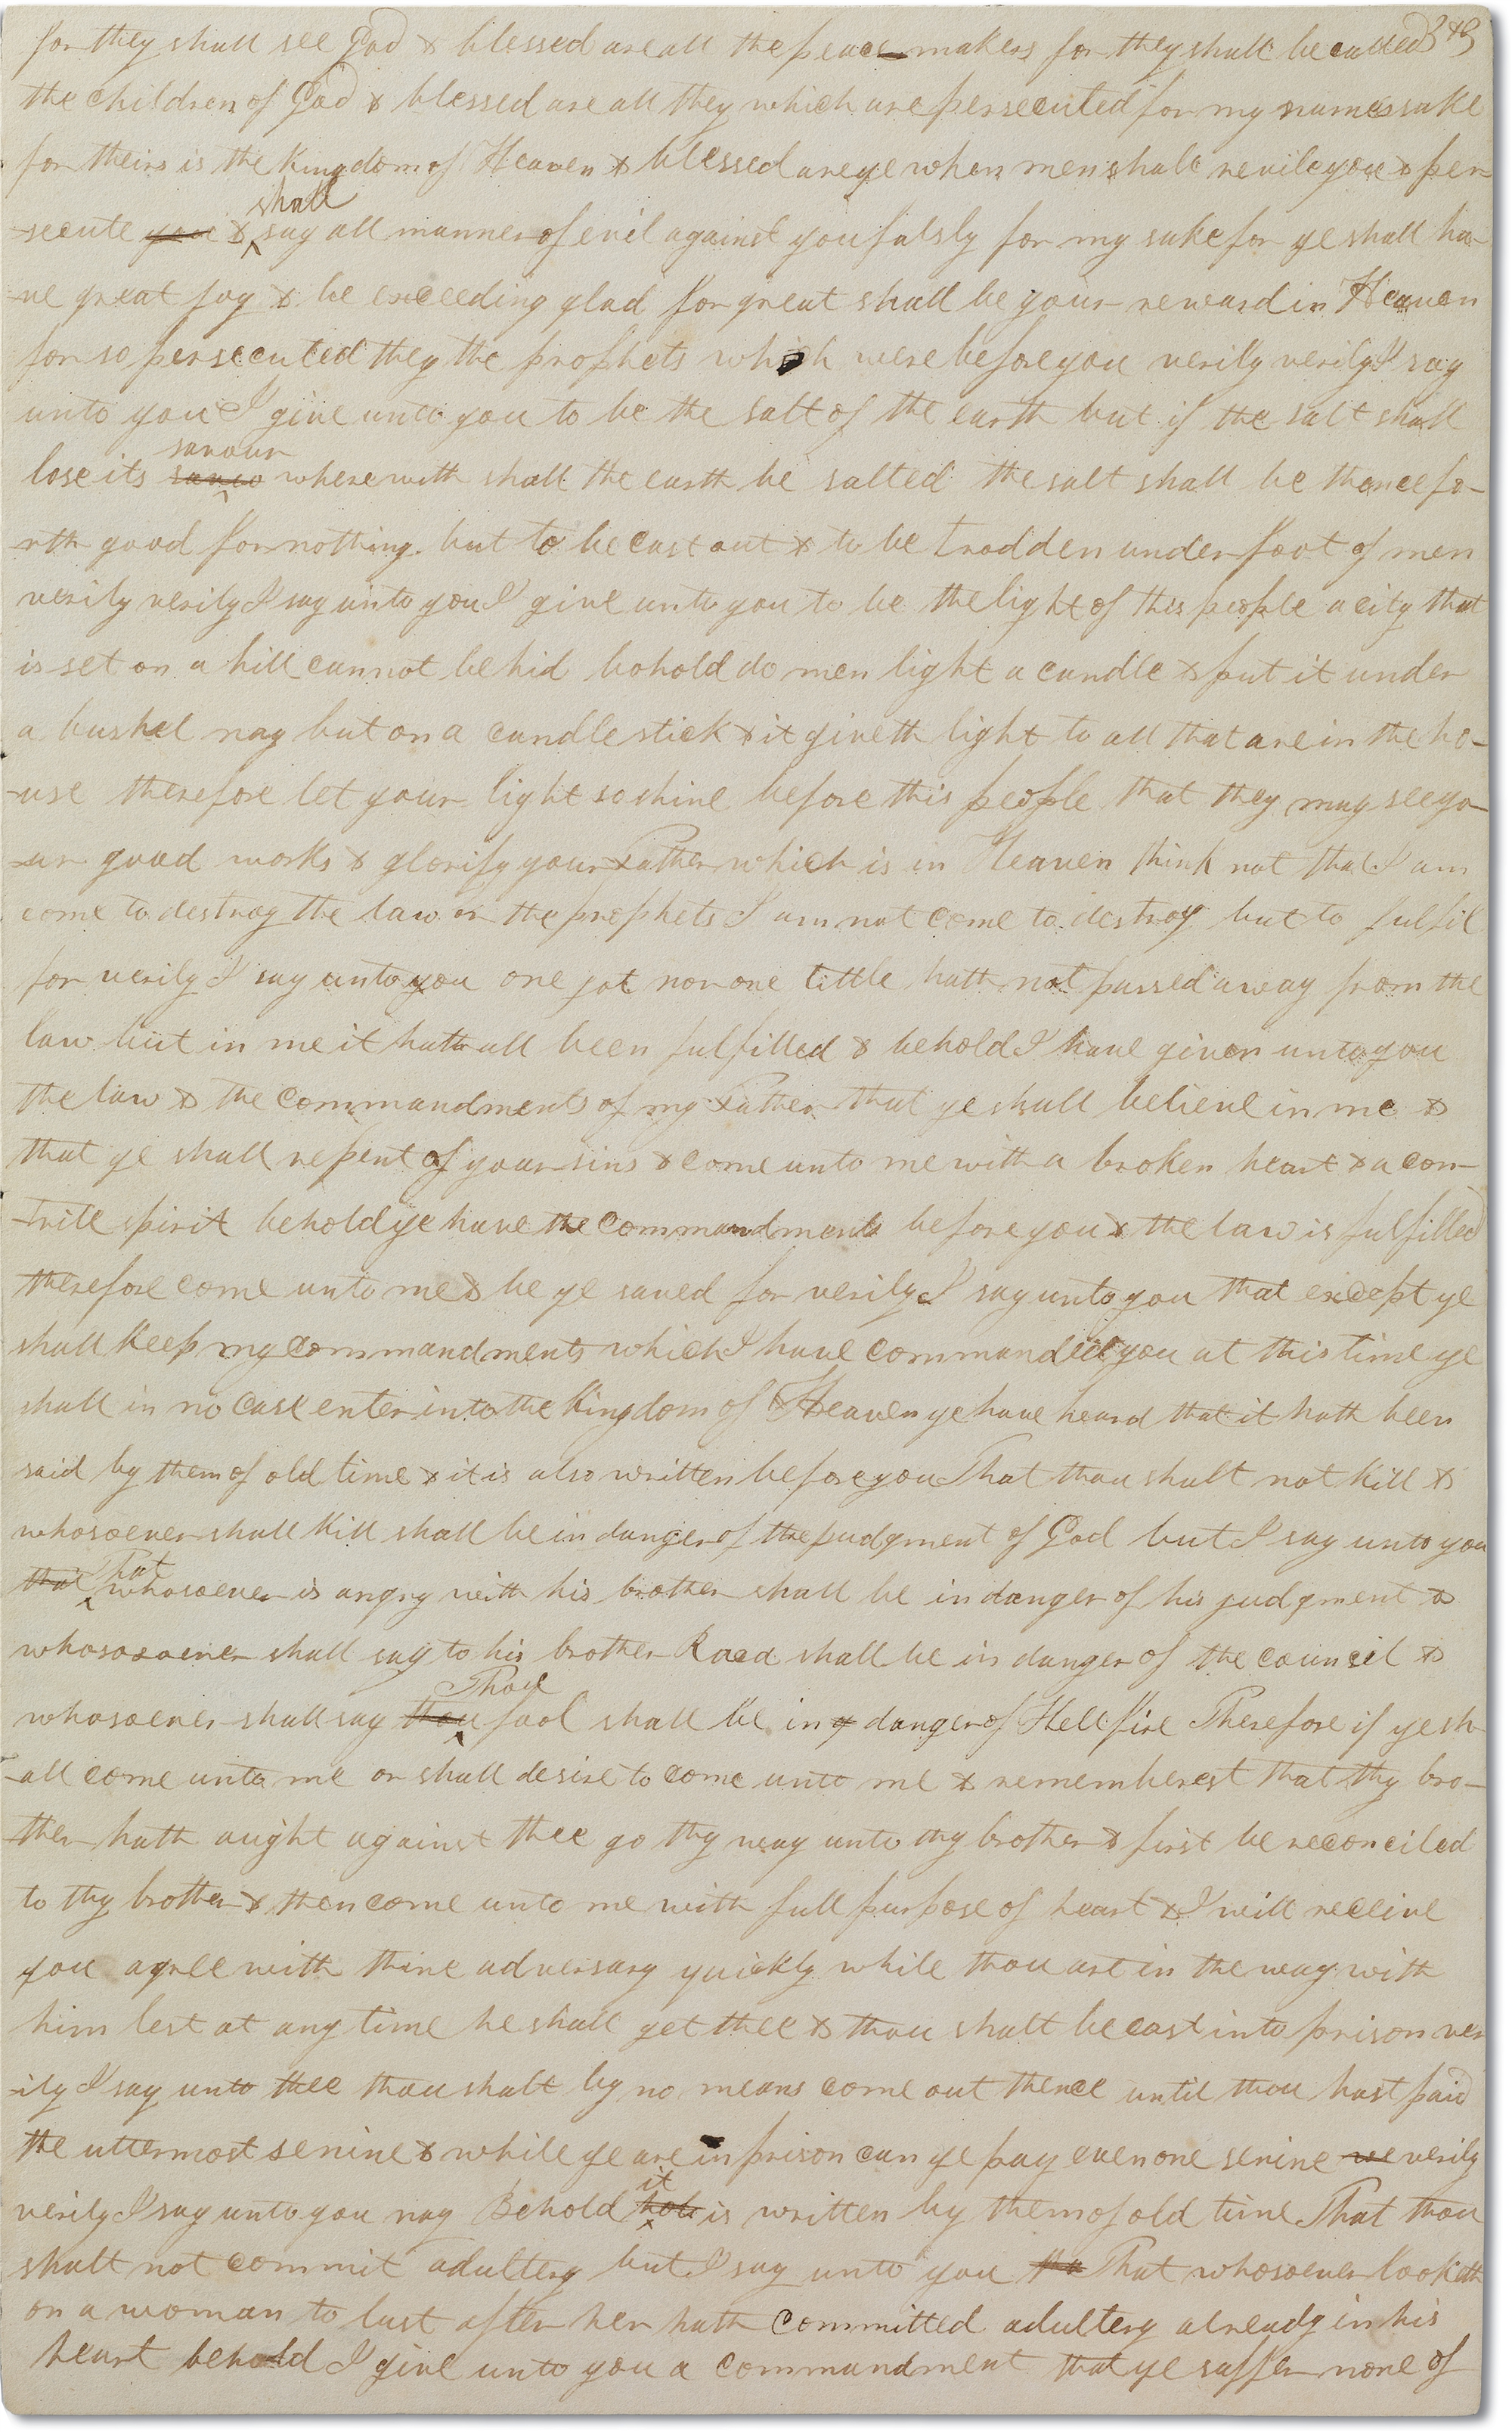 for they shall see God & blessed are all the peace makers for they shall be called
the children of God & blessed are all they which are persecuted for my names sake
for theirs is the Kingdom of Heaven & blessed are ye when men shall revile you & per
-secute you & shall say all manner of evil against you falsly for my sake for ye shall ha-
-ve great joy & be exceeding glad for great shall be your reward in Heaven
for so persecuted they the prophets which were before you verily verily I say
unto you I give unto you to be the salt of the earth but if the salt shall
lose its savour wherewith shall the earth be salted the salt shall be thencefo-
-rth good for nothing but to be cast out & to be trodden underfoot of men
verily verily I say unto you I give unto you to be the light of this people a city that
is set on a hill cannot be hid behold do men light a candle & put it under
a bushel nay but on a candlestick & it giveth light to all that are in the ho-
-use therefore let your light so shine before this people that they may see yo-
-ur good works & glorify your Father which is in Heaven think not that I am
come to destroy the law or the prophets I am not come to destroy but to fulfil
for verily I say unto you one jot nor one tittle hath not passed away from the
law but in me it hath all been fulfilled & behold I have given unto you
the law & the commandments of my Father that ye shall believe in me &
that ye shall repent of your sins & come unto me with a broken heart & a con-
-trite spirit behold ye have the commandments before you & the law is fulfilled
therefore come unto me & be ye saved for verily I say unto you that except ye
shall keep my commandments which I have commanded you at this time ye
shall in no case enter into the Kingdom of Heaven ye have heard that it hath been
said by them of old time & it is also written before you That thou shalt not kill &
whosoever shall kill shall be in danger of the judgment of God but I say unto you
that That whosoever is angry with his brother shall be in danger of his judgment &
whososoever shall say to his brother Raca shall be in danger of the council &
whosoever shall say thou Thou fool shall be in danger of Hell fire Therefore if ye sh-
-all come unto me or shall desire to come unto me & rememberest that thy bro-
-ther hath aught against thee go thy way unto thy brother & first be reconciled
to thy brother & then come unto me with full purpose of heart & I will receive
you agree with thine adversary quickly while thou art in the way with
him lest at any time he shall get thee & thou shalt be cast into prison ver
-ily I say unto thee thou shalt by no means come out thence until thou hast paid
the uttermost senine & while ye are in prison can ye pay even one senine ve verily
verily I say unto you nay Behold it is written by them of old time That thou
shalt not commit adultery but I say unto you tha That whosoever looketh
on a woman to lust after her hath committed adultery already in his
heart behold I give unto you a commandment that ye suffer none of